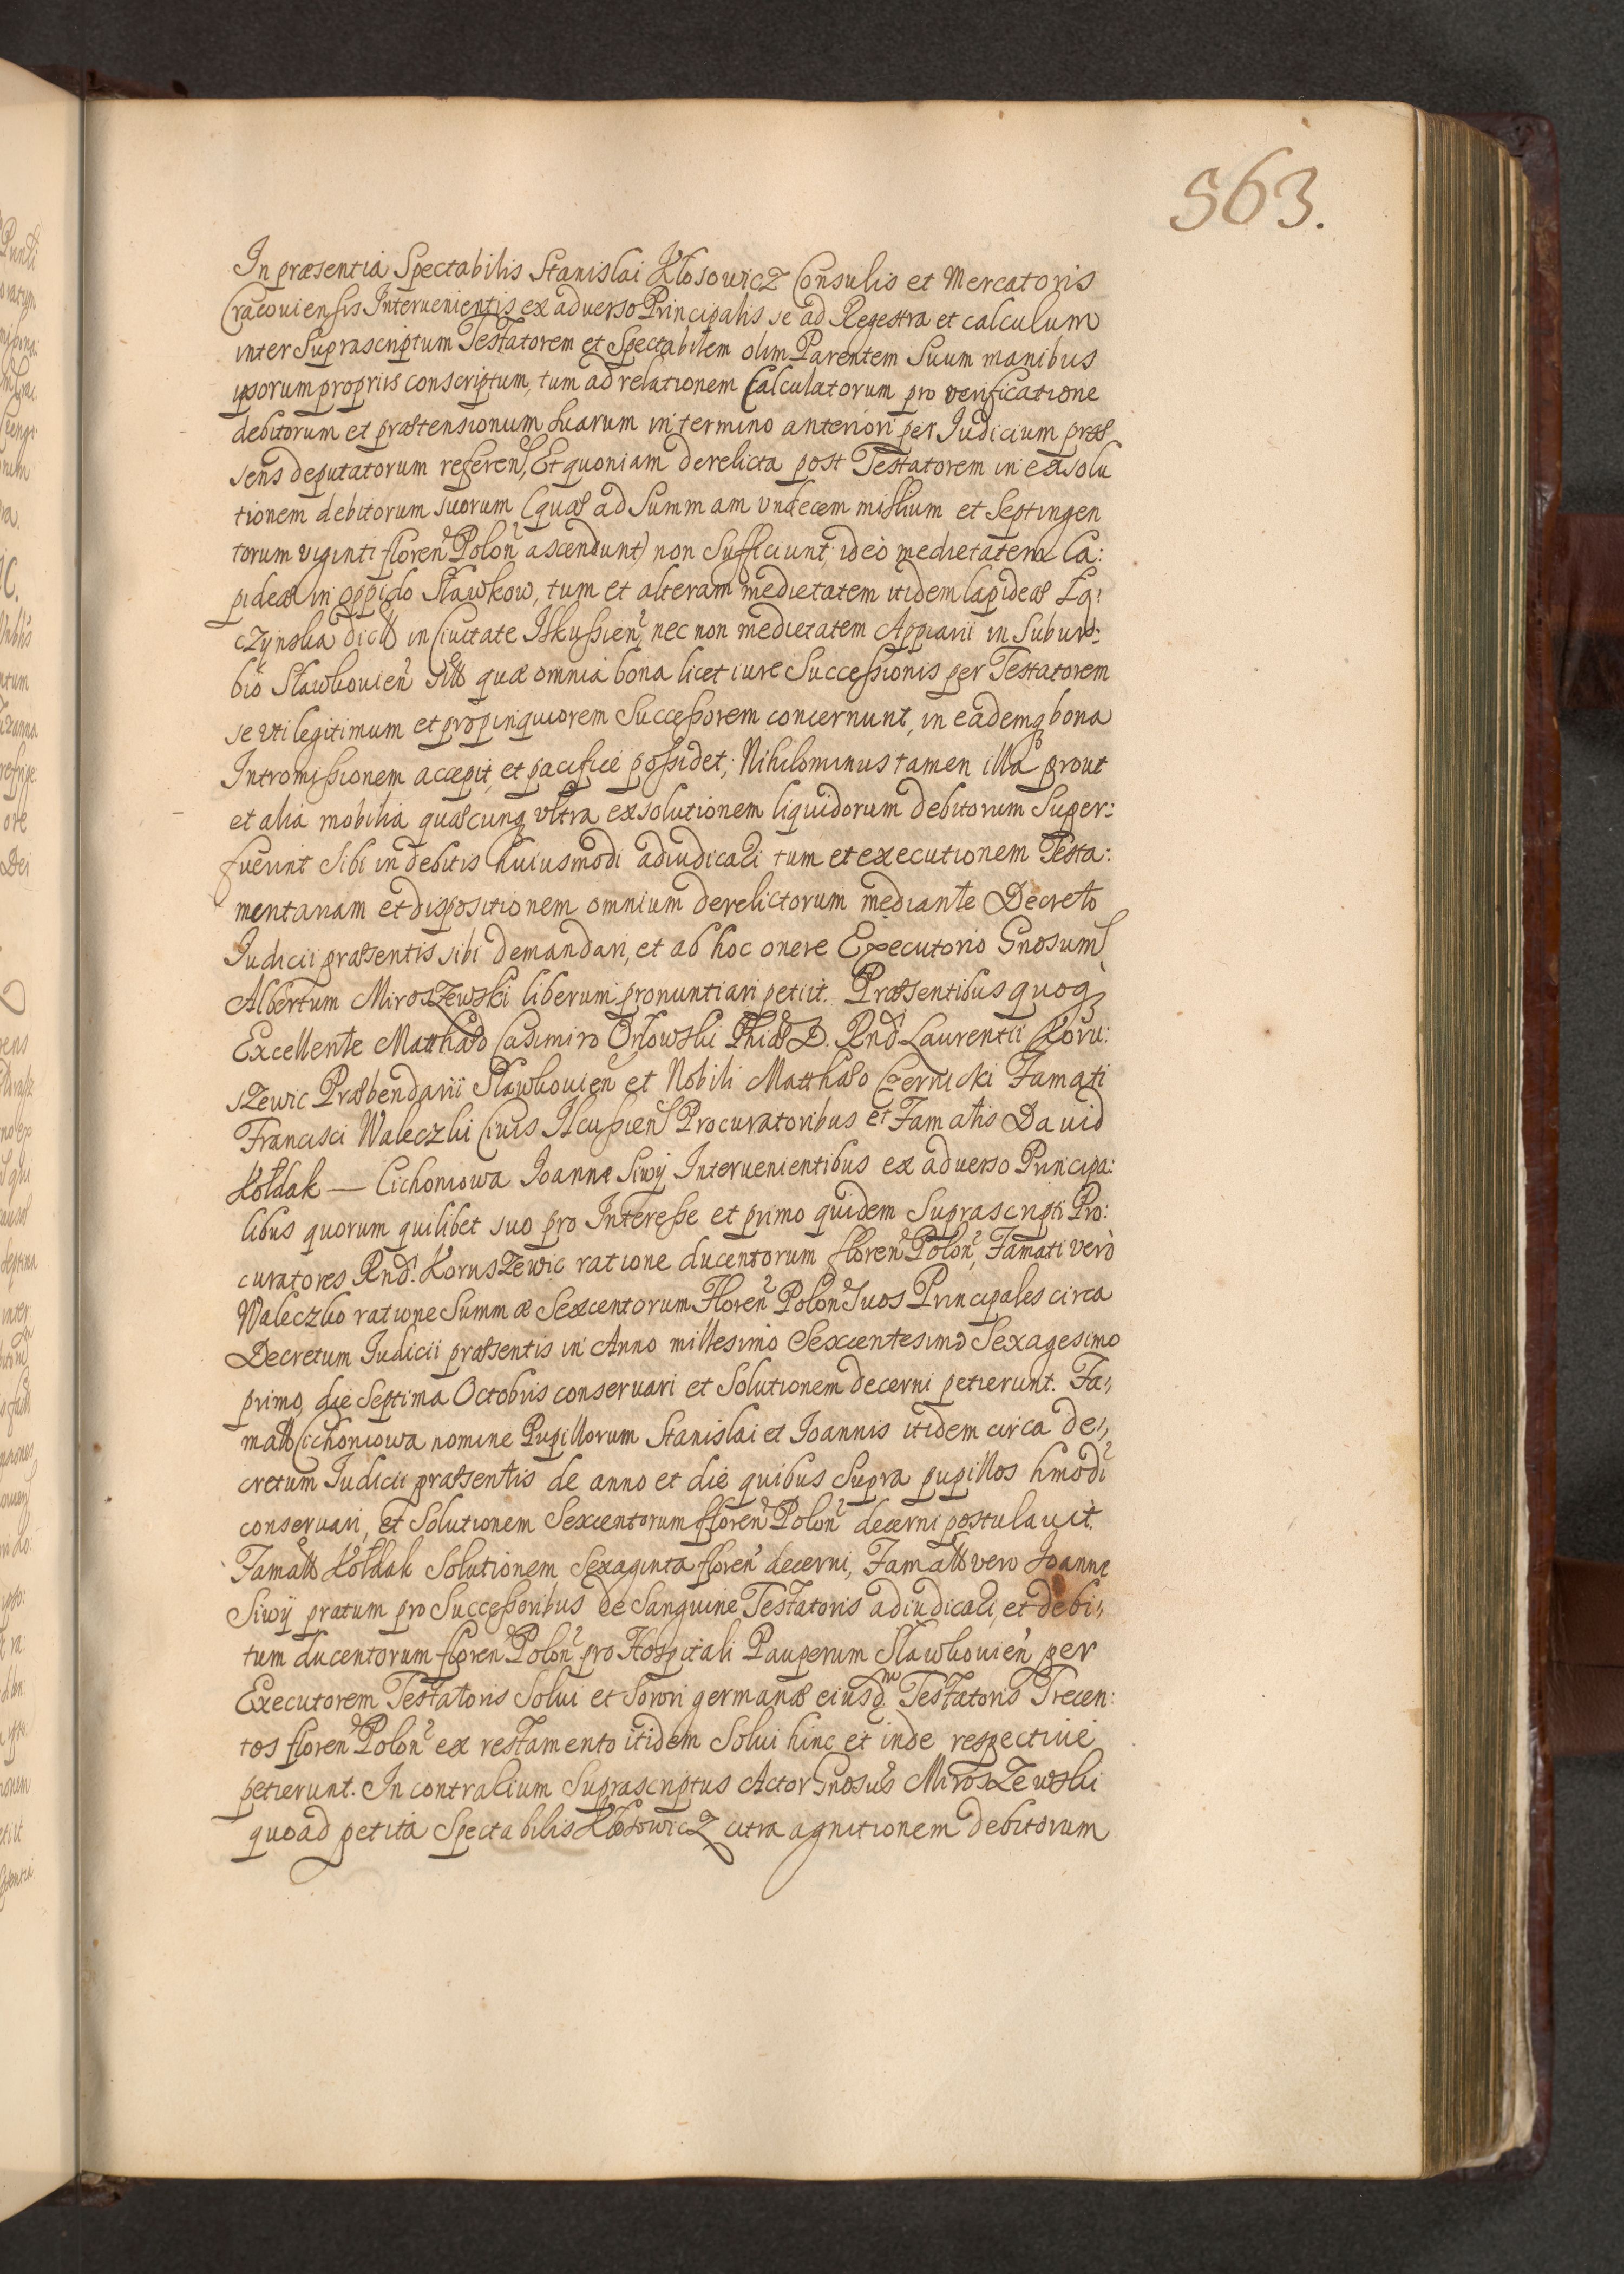 563.
In præsentia Spectabilis Stanislai Kłosowicz Consulis et Mercatoris
Cracouiensis Interuenientis ex aduerso Principalis se ad Regestra et calculum
inter Suprascriptum Testatorem et Spectabilem olim Parentem Suum manibus
ipsorum propriis conscriptum, tum ad relationem Calculatorum pro verificatione
debitorum et prætensionum suarum in termino anteriori per Iudicium præ
sens deputatorum referens, Et quoniam derelicta post Testatorem in exsolu
tionem debitorum suorum (quæ ad Summam vndecem millium et Septingen
torum viginti floren Polon ascendunt) non Sufficiunt, ideò medietatem La:
pideæ in oppido Sławkow, tum et alteram medietatem itidem lapideæ
czynska in Ciuitate Ilkussien, nec non medietatem Apiarii in Subur:
bio Sławkouien quæ omnia bona licet iure Successionis per Testatorem
se vti legitimum et propinquiorem Successorem concernunt, in eademq bona
Intromissionem accepit, et pacificè possidet, Nihilominus tamen illa prout
et alia mobilia quæcunq vltra exsolutionem liquidorum debitorum Super:
fuerint Sibi in debitis huiusmodi adiudicari tum et executionem Testa:
mentariam et dispositionem omnium derelictorum mediante Decreto
Iudicii præsentis sibi demandari, et ab hoc onere Executorio Gnosum
Albertum Miroszewski liberum pronuntiari petiit. Præsentibus quoq
Excellente Matthæo Casimiro Orłowski Phiæ D. Rnd Laurentii Koru:
szewic Præbendarii Sławkouien et Nobili Matthæo Czernicki Famati
Francisci Waleczki Ciuis Ilcussien Procuratoribus et Famatis Dauid
Kołdak — Cichoniowa Ioanne Siwy Interuenientibus ex aduerso Principa:
libus quorum quilibet suo pro Interesse et primo quidem Suprascripti Pro:
curatores Rnd. Koruszewic ratione ducentorum floren Polon, Famati verò
Waleczko ratione Summæ Sexcentorum Floren Polon Suos Principales circa
Decretum Iudicii præsentis in Anno millesimo Sexcentesimo Sexagesimo
primo, die Septima Octobris conseruari et Solutionem decerni petierunt. Fa,,
mata Cichoniowa nomine Pupillorum Stanislai et Ioannis itidem circa de,,
cretum Iudicii præsentis de anno et die quibus Supra pupillos hmodi
conseruari, et Solutionem Sexcentorum floren Polon decerni postulauit.
Famatus Kołdak Solutionem Sexaginta floren decerni, Famatus vero Ioanne
Siwy pratum pro Successoribus de Sanguine Testatoris adiudicari, et debi,,
tum ducentorum floren Polon pro Hospitali Pauperum Sławkouien per
Executorem Testatoris Solui et Sorori germanæ eiusdm Testatoris Trecen:
tos floren Polon ex testamento itidem Solui hinc et inde respectiue
petierunt. In contrarium Suprascriptus Actor Gnosus Miroszewski
quoad petita Spectabilis Kłosowicz citra agnitionem debitorum